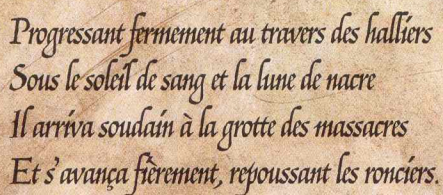 Progressant fermement au travers des halliers
Sous le soleil de sang et la lune de nacre
Il arriva soudain à la grotte des massacres
Et s'avança fièrement, repoussant les ronciers.